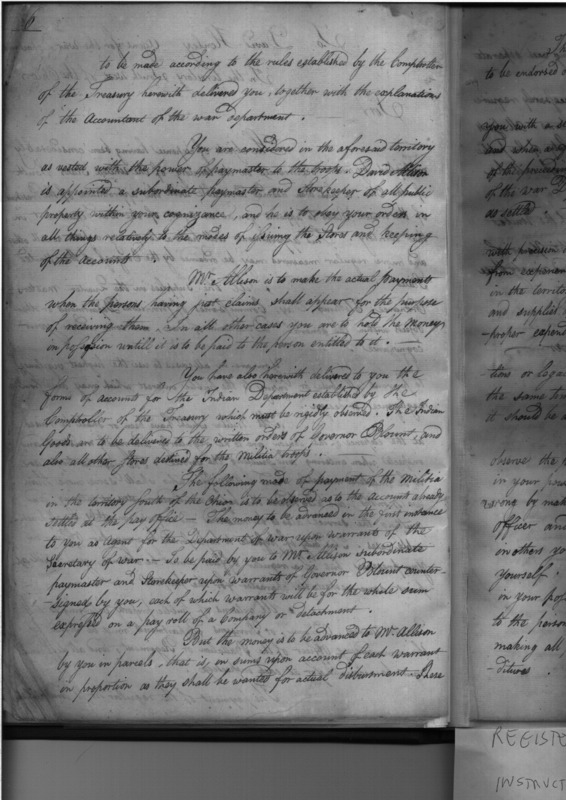 6
to be made according to the rules established by the Comptroller
of the Treasury herewith delivered you, together with the explanations
of the Accountant of the war department.
You are considered in the aforesaid territory
as vested with the power of paymaster to the troops. David Allison
is appointed a subordinate paymaster and Storekeeper of all public
property within your cognizance, and he is to obey your orders in
all things relatively to the modes of issuing the Stores and keeping
of the Accounts
Mr. Allison is to make the actual payments
when the persons having just claims, shall appear for the purpose
of receiving them. In all other cases you are to hold the Money
in possession untill it is to be paid to the person entitled to it. —
You have also herewith delivered to you the
forms of accounts for the Indian Department established by the
Comptroller of the Treasury which must be rigidly observed. The Indian
Goods are to be delivered to the written orders of Governor Blount, and
also all other stores destined for the Militia troops.
The following mode of payment of the Militia
in the territory South of the Ohio is to be observed as to the Account already
settled at the pay office — The money to be advanced in the first instance
to you as Agent for the Department of war upon warrants of the
Secretary of war. — To be paid by you to Mr. Allison subordinate
paymaster and Storekeeper upon warrants of Governor Blount counter-
-signed by you, each of which warrants will be for the whole sum
expressed on a pay roll of a Company or detachment.
But the money is to be advanced to Mr. Allison
by you in parcels, that is, in sums upon account of each warrant
in proportion as they shall be wanted for actual disbursment. There
to be endorsed
you with a
and when
of the preceeding
of the war
as settle
with precision
from
in the territo
and supplied
-proper expend
tion or lega
the same tim
it should be
observe the
in your
wrong by mak
officer and
on others yo
yourself.
on your
to the person
making all
ditures.
REGISTE
INSTRUCT